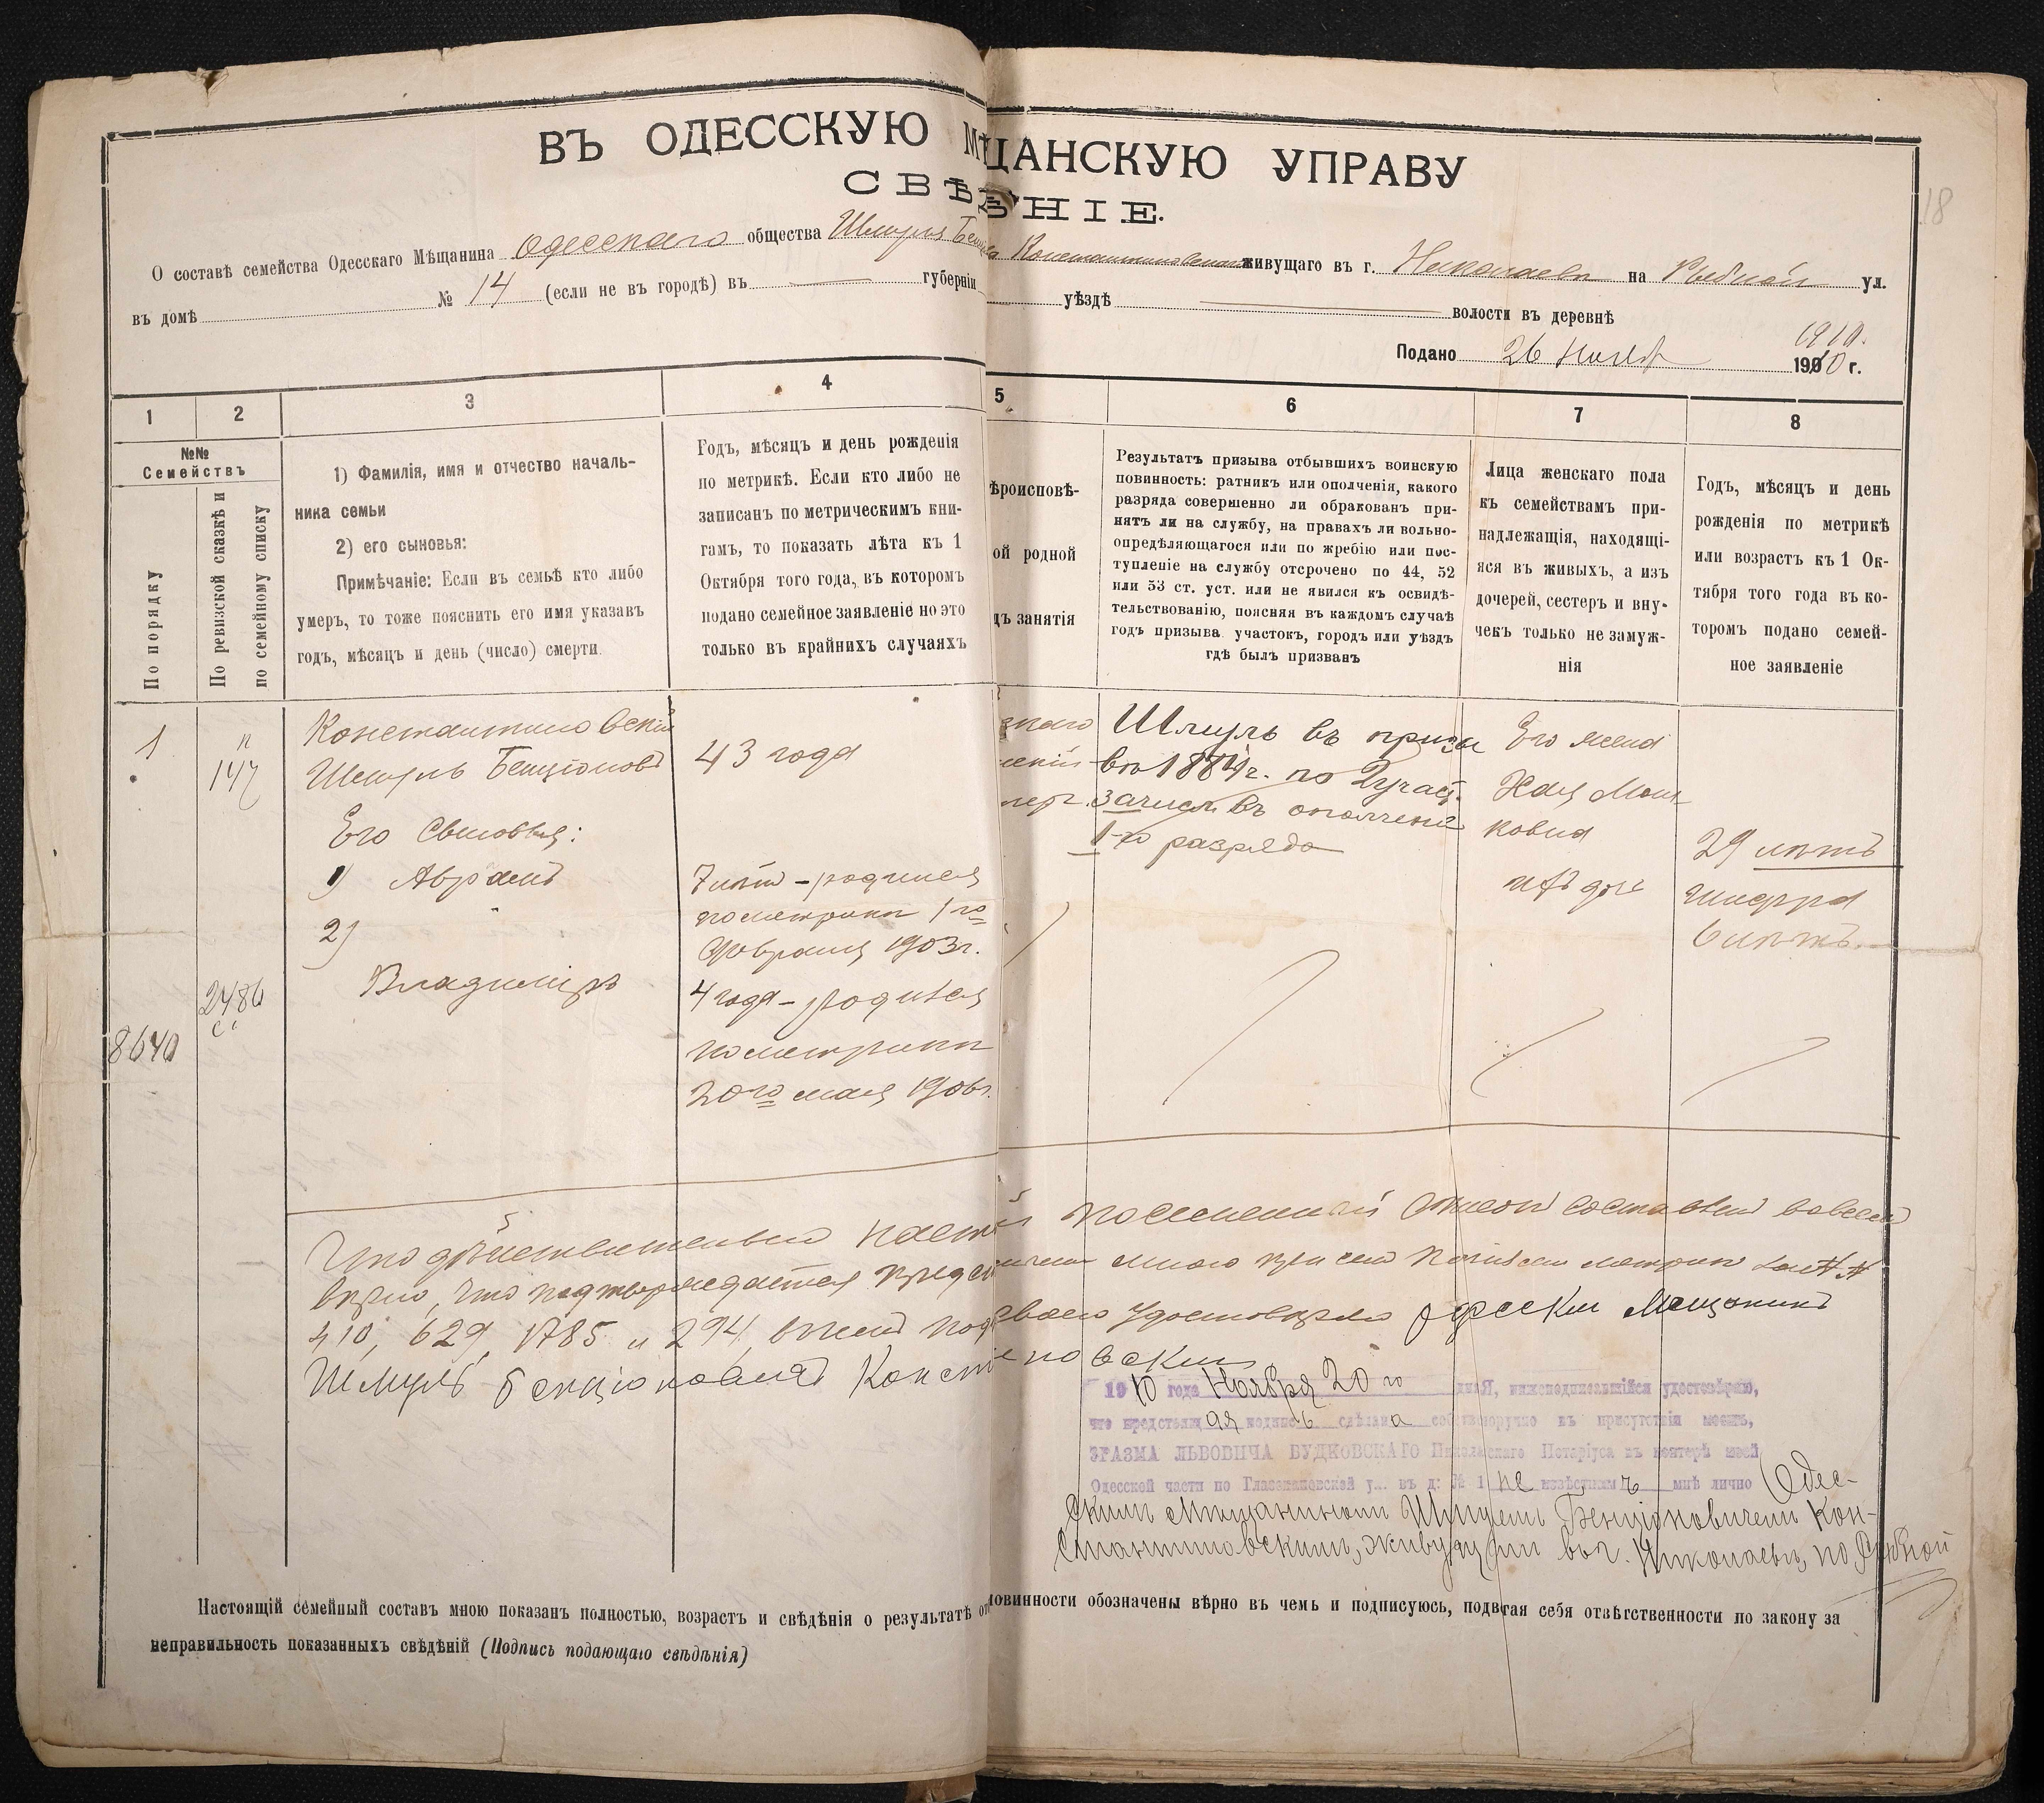 ВЪ ОДЕССКУЮ МѢЩАНСКУЮ УПРАВУ
СВѢ НІЕ.
18
О составѣ семейства Одесскаго Мѣщанина одесскаго общества Шмуля Бенц Константиновскаго живущаго въ г. Николаевѣ на Рыбной ул.
въ домѣ № 14 (если не въ городѣ) въ губерніи уѣздѣ волости въ деревнѣ
1910.
Подано 26 Ноября 1910 г.
1 2 3 4 5 6 7 8
№№
Семействъ
По порядку
По ревизской сказкѣ и
по семейному списку
1) Фамилія, имя и отчество началь-
ника семьи
2) его сыновья:
Примѣчаніе: Если въ семьѣ кто либо
умеръ, то тоже пояснить его имя указавъ
годъ, мѣсяцъ и день (число) смерти.
Годъ, мѣсяцъ и день рожденія
по метрикѣ. Если кто либо не
записанъ по метрическимъ кни-
гамъ, то показать лѣта къ 1
Октября того года, въ которомъ
подано семейное заявленіе но это
только въ крайнихъ случаяхъ
ѣроисповѣ-
ой родной
дъ занятія
Результатъ призыва отбывшихъ воинскую
повинность: ратникъ или ополченія, какого
разряда совершенно ли обракованъ при-
нятъ ли на службу, на правахъ ли вольно-
опредѣляющагося или по жребію или пос-
тупленіе на службу отсрочено по 44, 52
или 53 ст. уст. или не явился къ освидѣ-
тельствованію, поясняя въ каждомъ случаѣ
годъ призыва участокъ, городъ или уѣздъ
гдѣ былъ призванъ
Лица женскаго пола
къ семействамъ при-
надлежащія, находящі-
яся въ живыхъ, а изъ
дочерей, сестеръ и вну-
чекъ только не замуж-
нія
Годъ, мѣсяцъ и день
рожденія по метрикѣ
или возрастъ къ 1 Ок-
тября того года въ ко-
торомъ подано семей-
ное заявленіе
1
147
Константиновскій
Шмуль Бенціоновъ
43 года
Его Сыновья:
1) Аврамъ
7 лѣтъ - родился
по метрикѣ 1го
Февраля 1903 г.
2)
Владиміръ
4 года - родился
по метрикѣ
20го мая 1906 г.
2486
8640
Шмуль въ призы
въ 1884 г. по 2 участ.
зачисл. въ ополчение
1-го разряда
Его жена
ковна
29 лѣтъ
6 лѣтъ.
Что дѣйствительно наст посемейный списокъ составленъ во всемъ
вѣрно, что подтверждается предс мною при семъ метрик за №№
410, 629, 1785 и 294, въ чемъ под своею удостовѣряю одесскій Мещанинъ
Шмуль Бенціоновичъ Конст новскій
1910 года Ноября 20 го дня Я, нижеподписавшійся удостовѣряю,
что предстоящая подпись сдѣлана собственоручно въ присутствіи моемъ,
ЭРАЗМА ЛЬВОВИЧА БУДКОВСКАГО Николаевскаго Нотаріуса въ конторѣ моей
Одесской части по Глазенаповской у. въ д: № 1 неизвѣстнымъ мнѣ лично Одес-
скимъ мѣщаниномъ Шмулемъ Бенціоновичемъ Кон-
стантиновскимъ, живущимъ въ г. Николаевѣ, по Рыбной
Настоящій семейный составъ мною показанъ полностью, возрастъ и свѣдѣнія о результатѣ от повинности обозначены вѣрно въ чемъ и подписуюсь, подвегая себя отвѣтственности по закону за
неправильность показанныхъ свѣдѣній (Подпись подающаго свѣдѣнія)